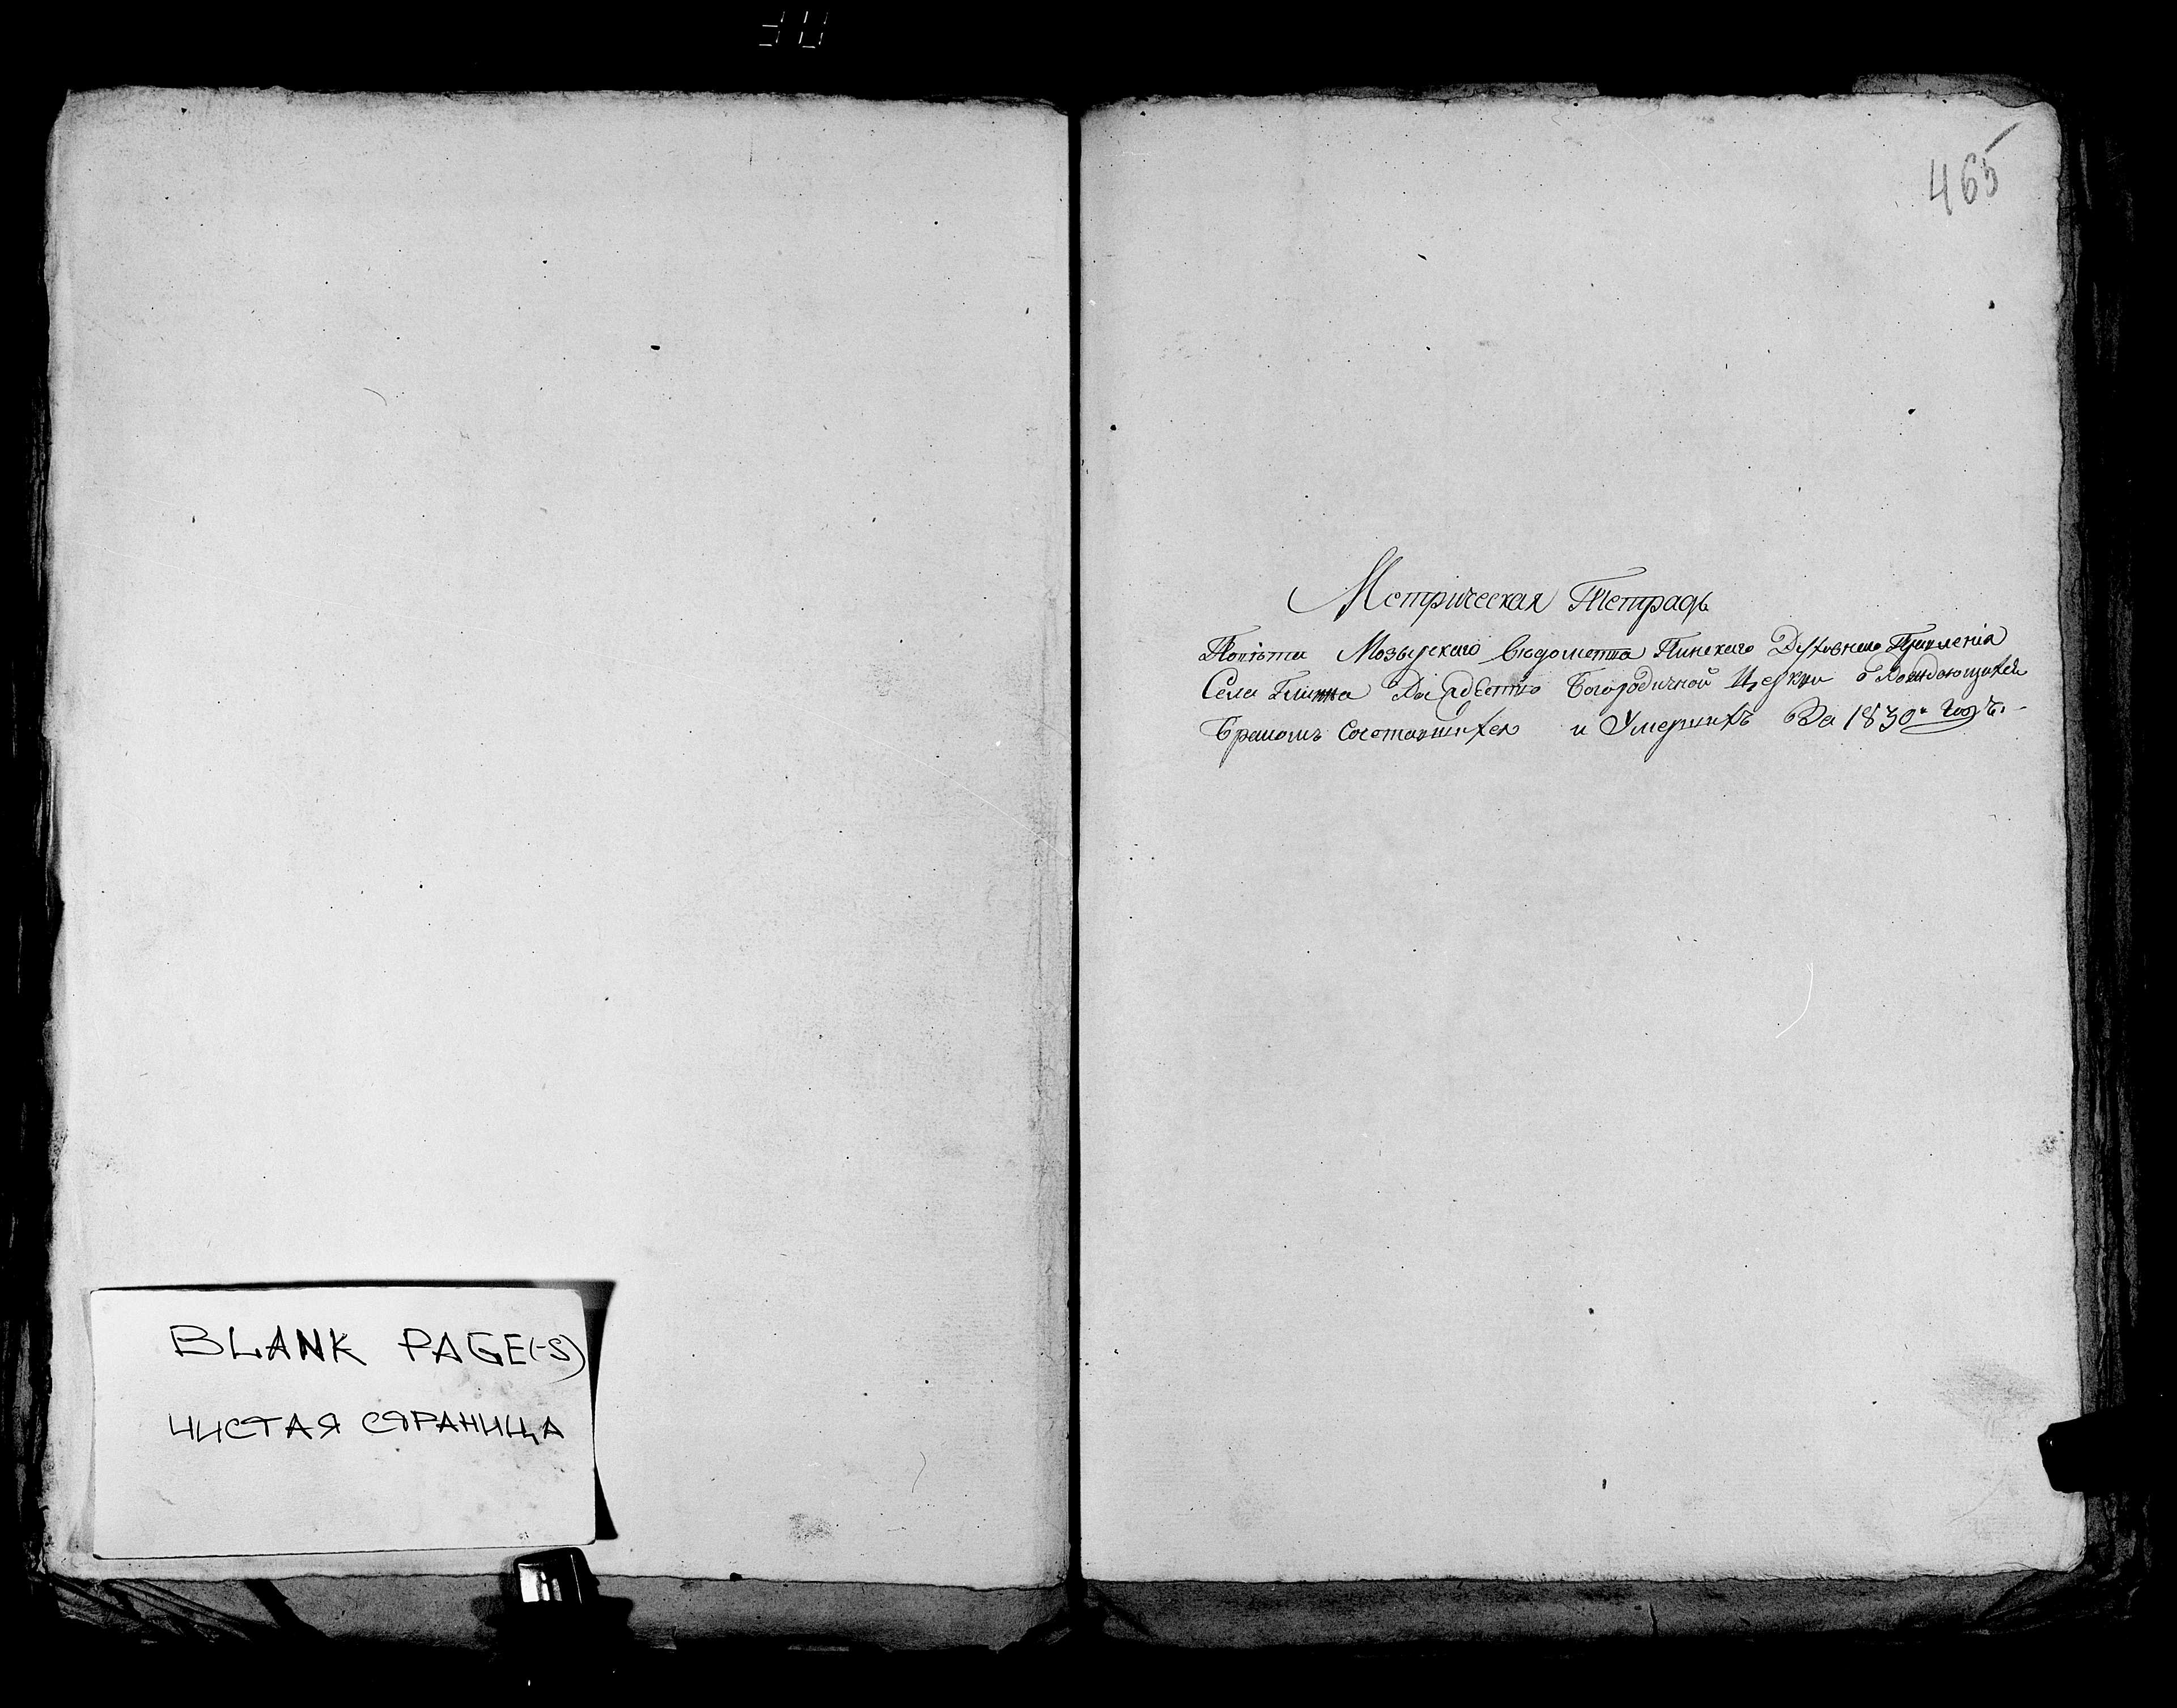 BLANK PAGE(-S)
ЧИСТАЯ СТРАНИЦА
465
Метрическая Тетрадь
Повѣта Мозырскаго Вѣдомства Пинскаго Духовнаго Правленія
Села Рождество Богородичной Церкви о Рождающихся
Бракомъ Сочетавшихся и Умершихъ За 1830й Годъ.